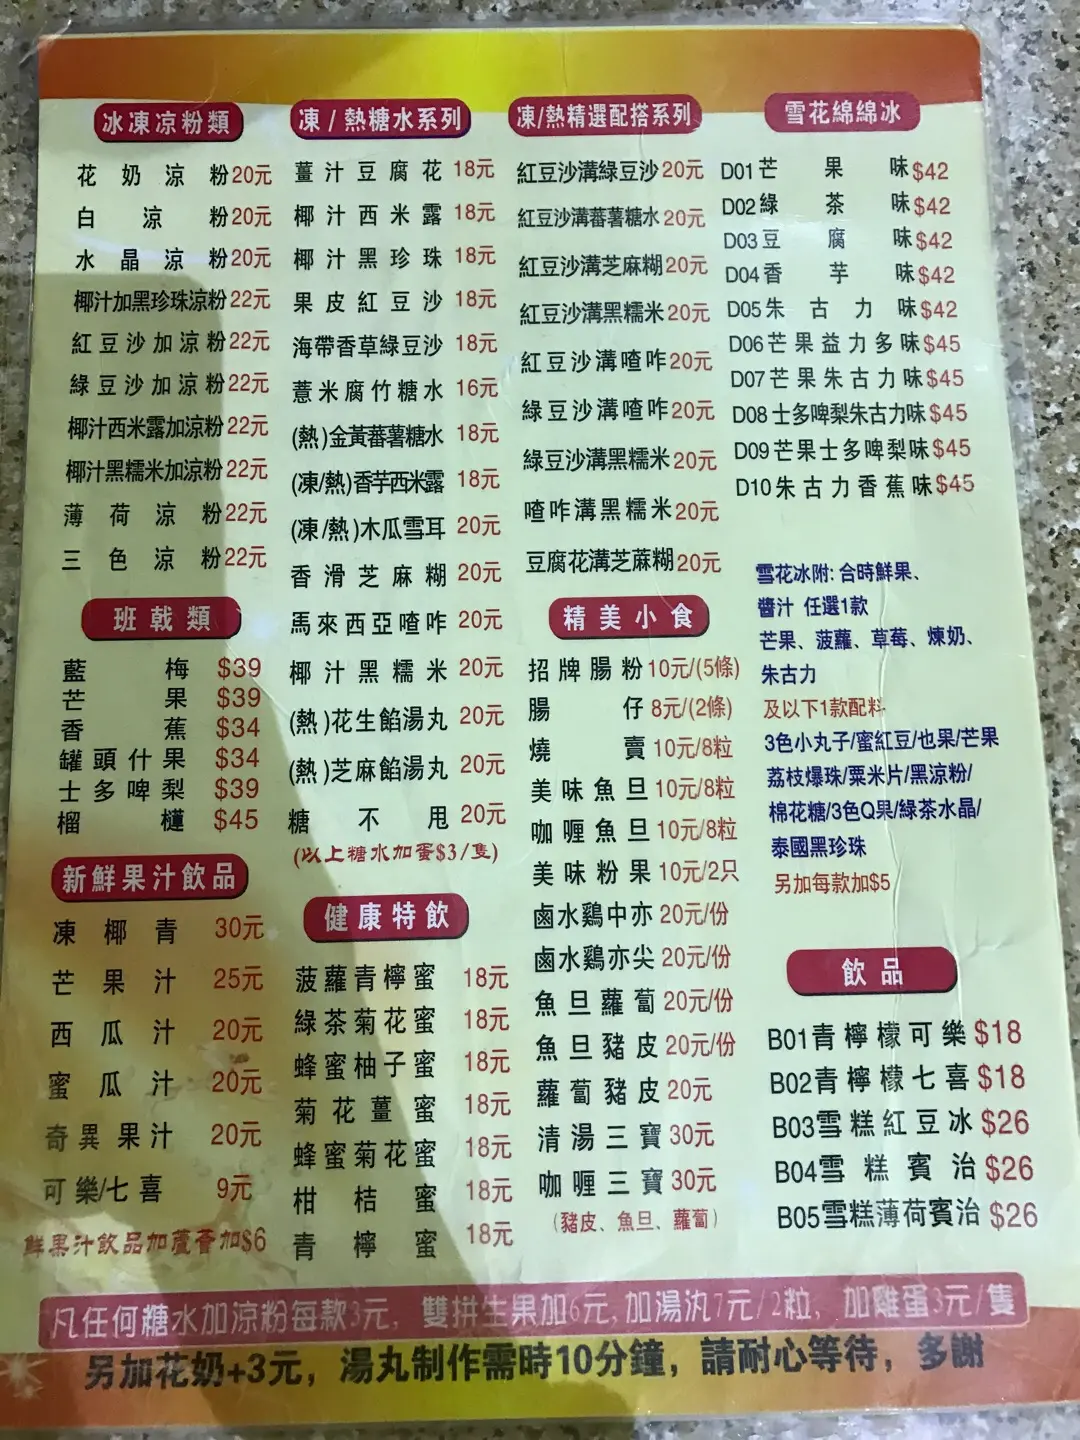 冰凍涼粉類
花奶涼粉20元
白涼粉20元
水晶涼粉20元
椰汁加黑珍珠涼粉22元
紅豆沙加涼粉22元
綠豆沙加涼粉22元
椰汁西米露加涼粉22元
椰汁黑糯米加涼粉22元
薄荷涼粉22元
三色涼粉22元
班戟類
藍梅 $39
芒果 $39
香蕉 $34
罐頭什果 $34
士多啤梨 $39
榴槤 $45
新鮮果汁飲品
凍椰青 30元
芒果汁 25元
西瓜汁 20元
蜜瓜汁 20元
奇異果汁 20元
可樂/七喜 9元
鮮果汁飲品加蘆薈加$6
凍/熱糖水系列
薑汁豆腐花 18元
椰汁西米露 18元
椰汁黑珍珠 18元
果皮紅豆沙 18元
海帶香草綠豆沙 18元
薏米腐竹糖水 16元
(熱)金黃蕃薯糖水 18元
(凍/熱)香芋西米露 18元
(凍/熱)木瓜雪耳 20元
香滑芝麻糊 20元
馬來西亞喳咋 20元
椰汁黑糯米 20元
(熱)花生餡湯丸 20元
(熱)芝麻餡湯丸 20元
糖不甩 20元
(以上糖水加蛋$3/隻)
健康特飲
菠蘿青檸蜜 18元
綠茶菊花蜜 18元
蜂蜜柚子蜜 18元
菊花薑蜜 18元
蜂蜜菊花蜜 18元
柑桔蜜 18元
青檸蜜 18元
凍/熱精選配搭系列
紅豆沙溝綠豆沙20元
紅豆沙溝蕃薯糖水20元
紅豆沙溝芝麻糊20元
紅豆沙溝黑糯米20元
紅豆沙溝喳咋20元
綠豆沙溝喳咋20元
綠豆沙溝黑糯米20元
喳咋溝黑糯米20元
豆腐花溝芝蔴糊20元
精美小食
招牌腸粉10元/(5條)
腸仔8元/(2條)
燒賣10元/8粒
美味魚旦10元/8粒
咖喱魚旦10元/8粒
美味粉果10元/2只
鹵水鷄中亦20元/份
鹵水鷄亦尖20元/份
魚旦蘿蔔20元/份
魚旦豬皮20元/份
蘿蔔豬皮20元
清湯三寶30元
咖喱三寶30元
(豬皮、魚旦、蘿蔔)
雪花綿綿冰
D01芒果味$42
D02綠茶味$42
D03豆腐味$42
D04香芋味$42
D05朱古力味$42
D06芒果益力多味$45
D07芒果朱古力味$45
D08士多啤梨朱古力味$45
D09芒果士多啤梨味$45
D10朱古力香蕉味$45
雪花冰附:合時鮮果、
醬汁 任選1款
芒果、菠蘿、草莓、煉奶、
朱古力
及以下1款配料
3色小丸子/蜜紅豆/也果/芒果
荔枝爆珠/粟米片/黑涼粉/
棉花糖/3色Q果/綠茶水晶/
泰國黑珍珠
另加每款加$5
飲品
B01青檸檬可樂 $18
B02青檸檬七喜 $18
B03雪糕紅豆冰 $26
B04雪糕賓治 $26
B05雪糕薄荷賓治 $26
凡任何糖水加涼粉每款3元,雙拼生果加6元,加湯氿7元/2粒,加雞蛋3元/隻
另加花奶+3元,湯丸制作需時10分鐘,請耐心等待,多謝